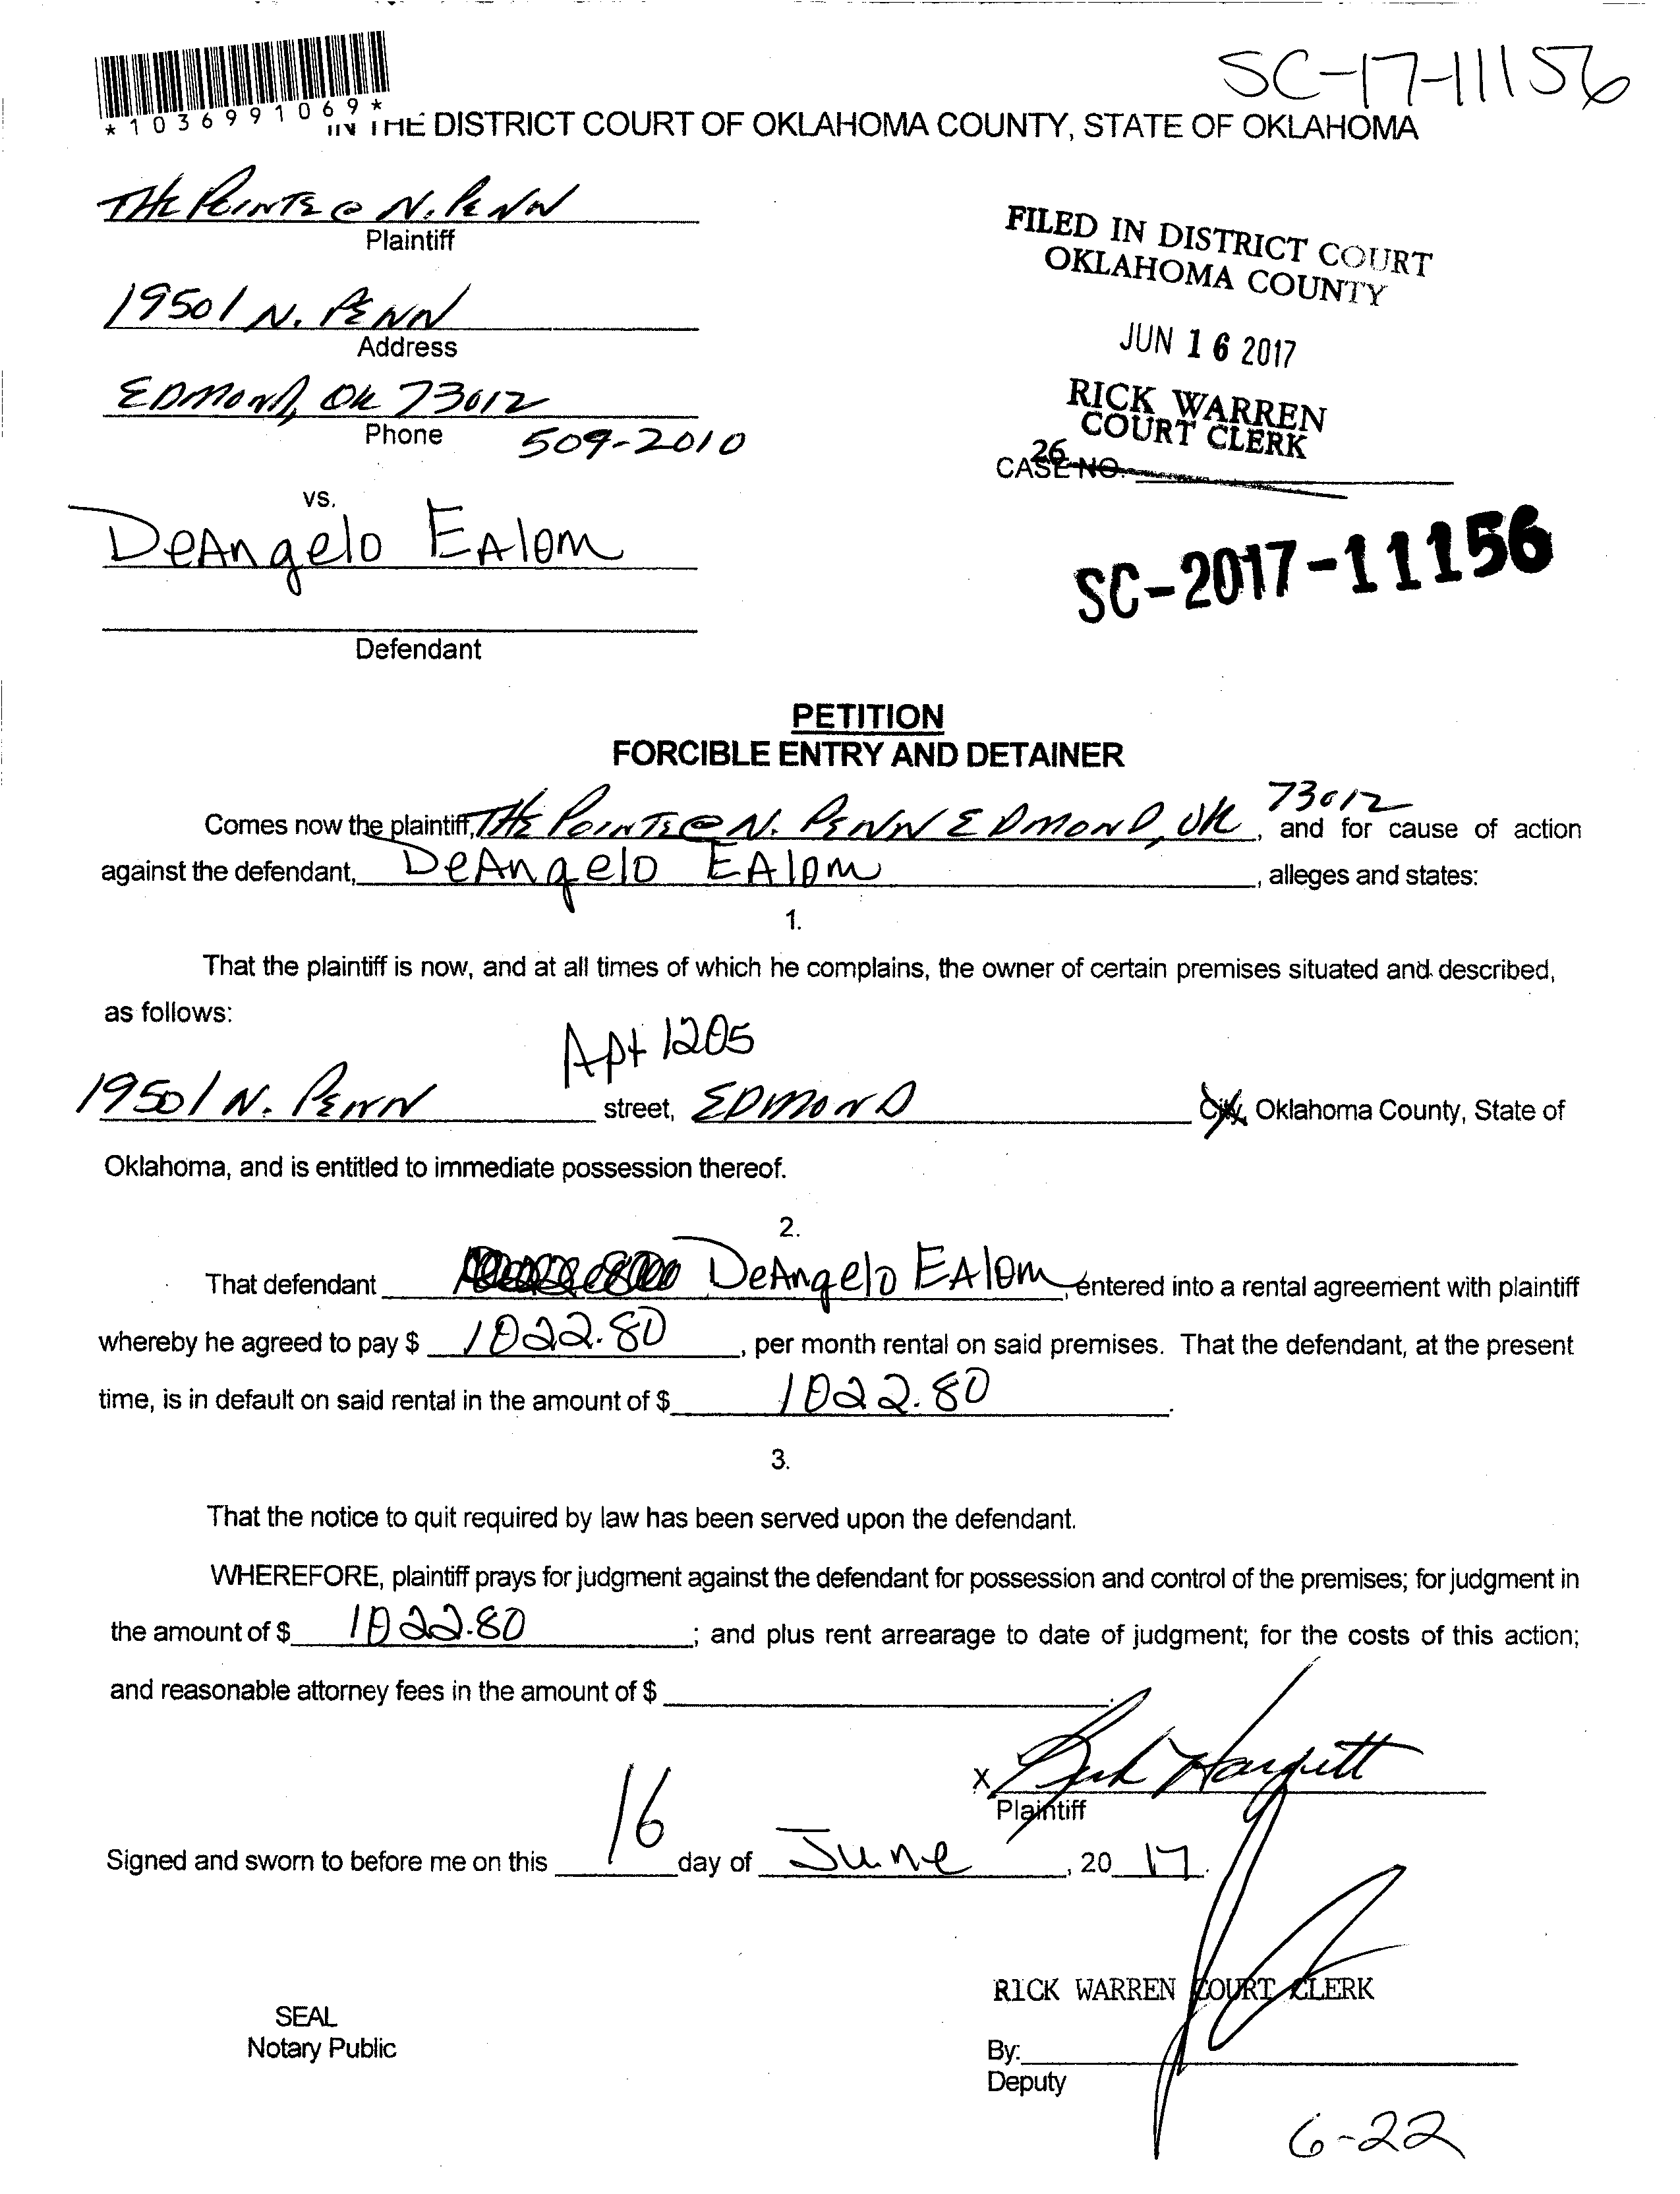 SC-17-11156
*1036991069*
IN THE DISTRICT COURT OF OKLAHOMA COUNTY, STATE OF OKLAHOMA
THE POINTE @ N. PENN
Plaintiff
FILED IN DISTRICT COURT
OKLAHOMA COUNTY
19501 N. PENN
Address
JUN 16 2017
EDMOND, OK 73012
Phone 509-2010
RICK WARREN
COURT CLERK
26
CASE NO.
vs.
DeAngelo EAlom
SC-2017-11156
Defendant
PETITION
FORCIBLE ENTRY AND DETAINER
73012
Comes now the plaintiff, THE POINTE @ N. PENN EDMOND, OK, and for cause of action
against the defendant, DeAngelo EAlom, alleges and states:
1.
That the plaintiff is now, and at all times of which he complains, the owner of certain premises situated and described,
as follows:
Apt 1205
19501 N. PENN street, EDMOND City, Oklahoma County, State of
Oklahoma, and is entitled to immediate possession thereof.
2.
That defendant DeAngelo EAlom, entered into a rental agreement with plaintiff
whereby he agreed to pay $ 1022.80, per month rental on said premises. That the defendant, at the present
time, is in default on said rental in the amount of $ 1022.80.
3.
That the notice to quit required by law has been served upon the defendant.
WHEREFORE, plaintiff prays for judgment against the defendant for possession and control of the premises; for judgment in
the amount of $ 1022.80; and plus rent arrearage to date of judgment; for the costs of this action;
and reasonable attorney fees in the amount of $
X Hargett
Plaintiff
Signed and sworn to before me on this 16 day of June, 20 17.
RICK WARREN COURT CLERK
SEAL
Notary Public
By:
Deputy
6-22